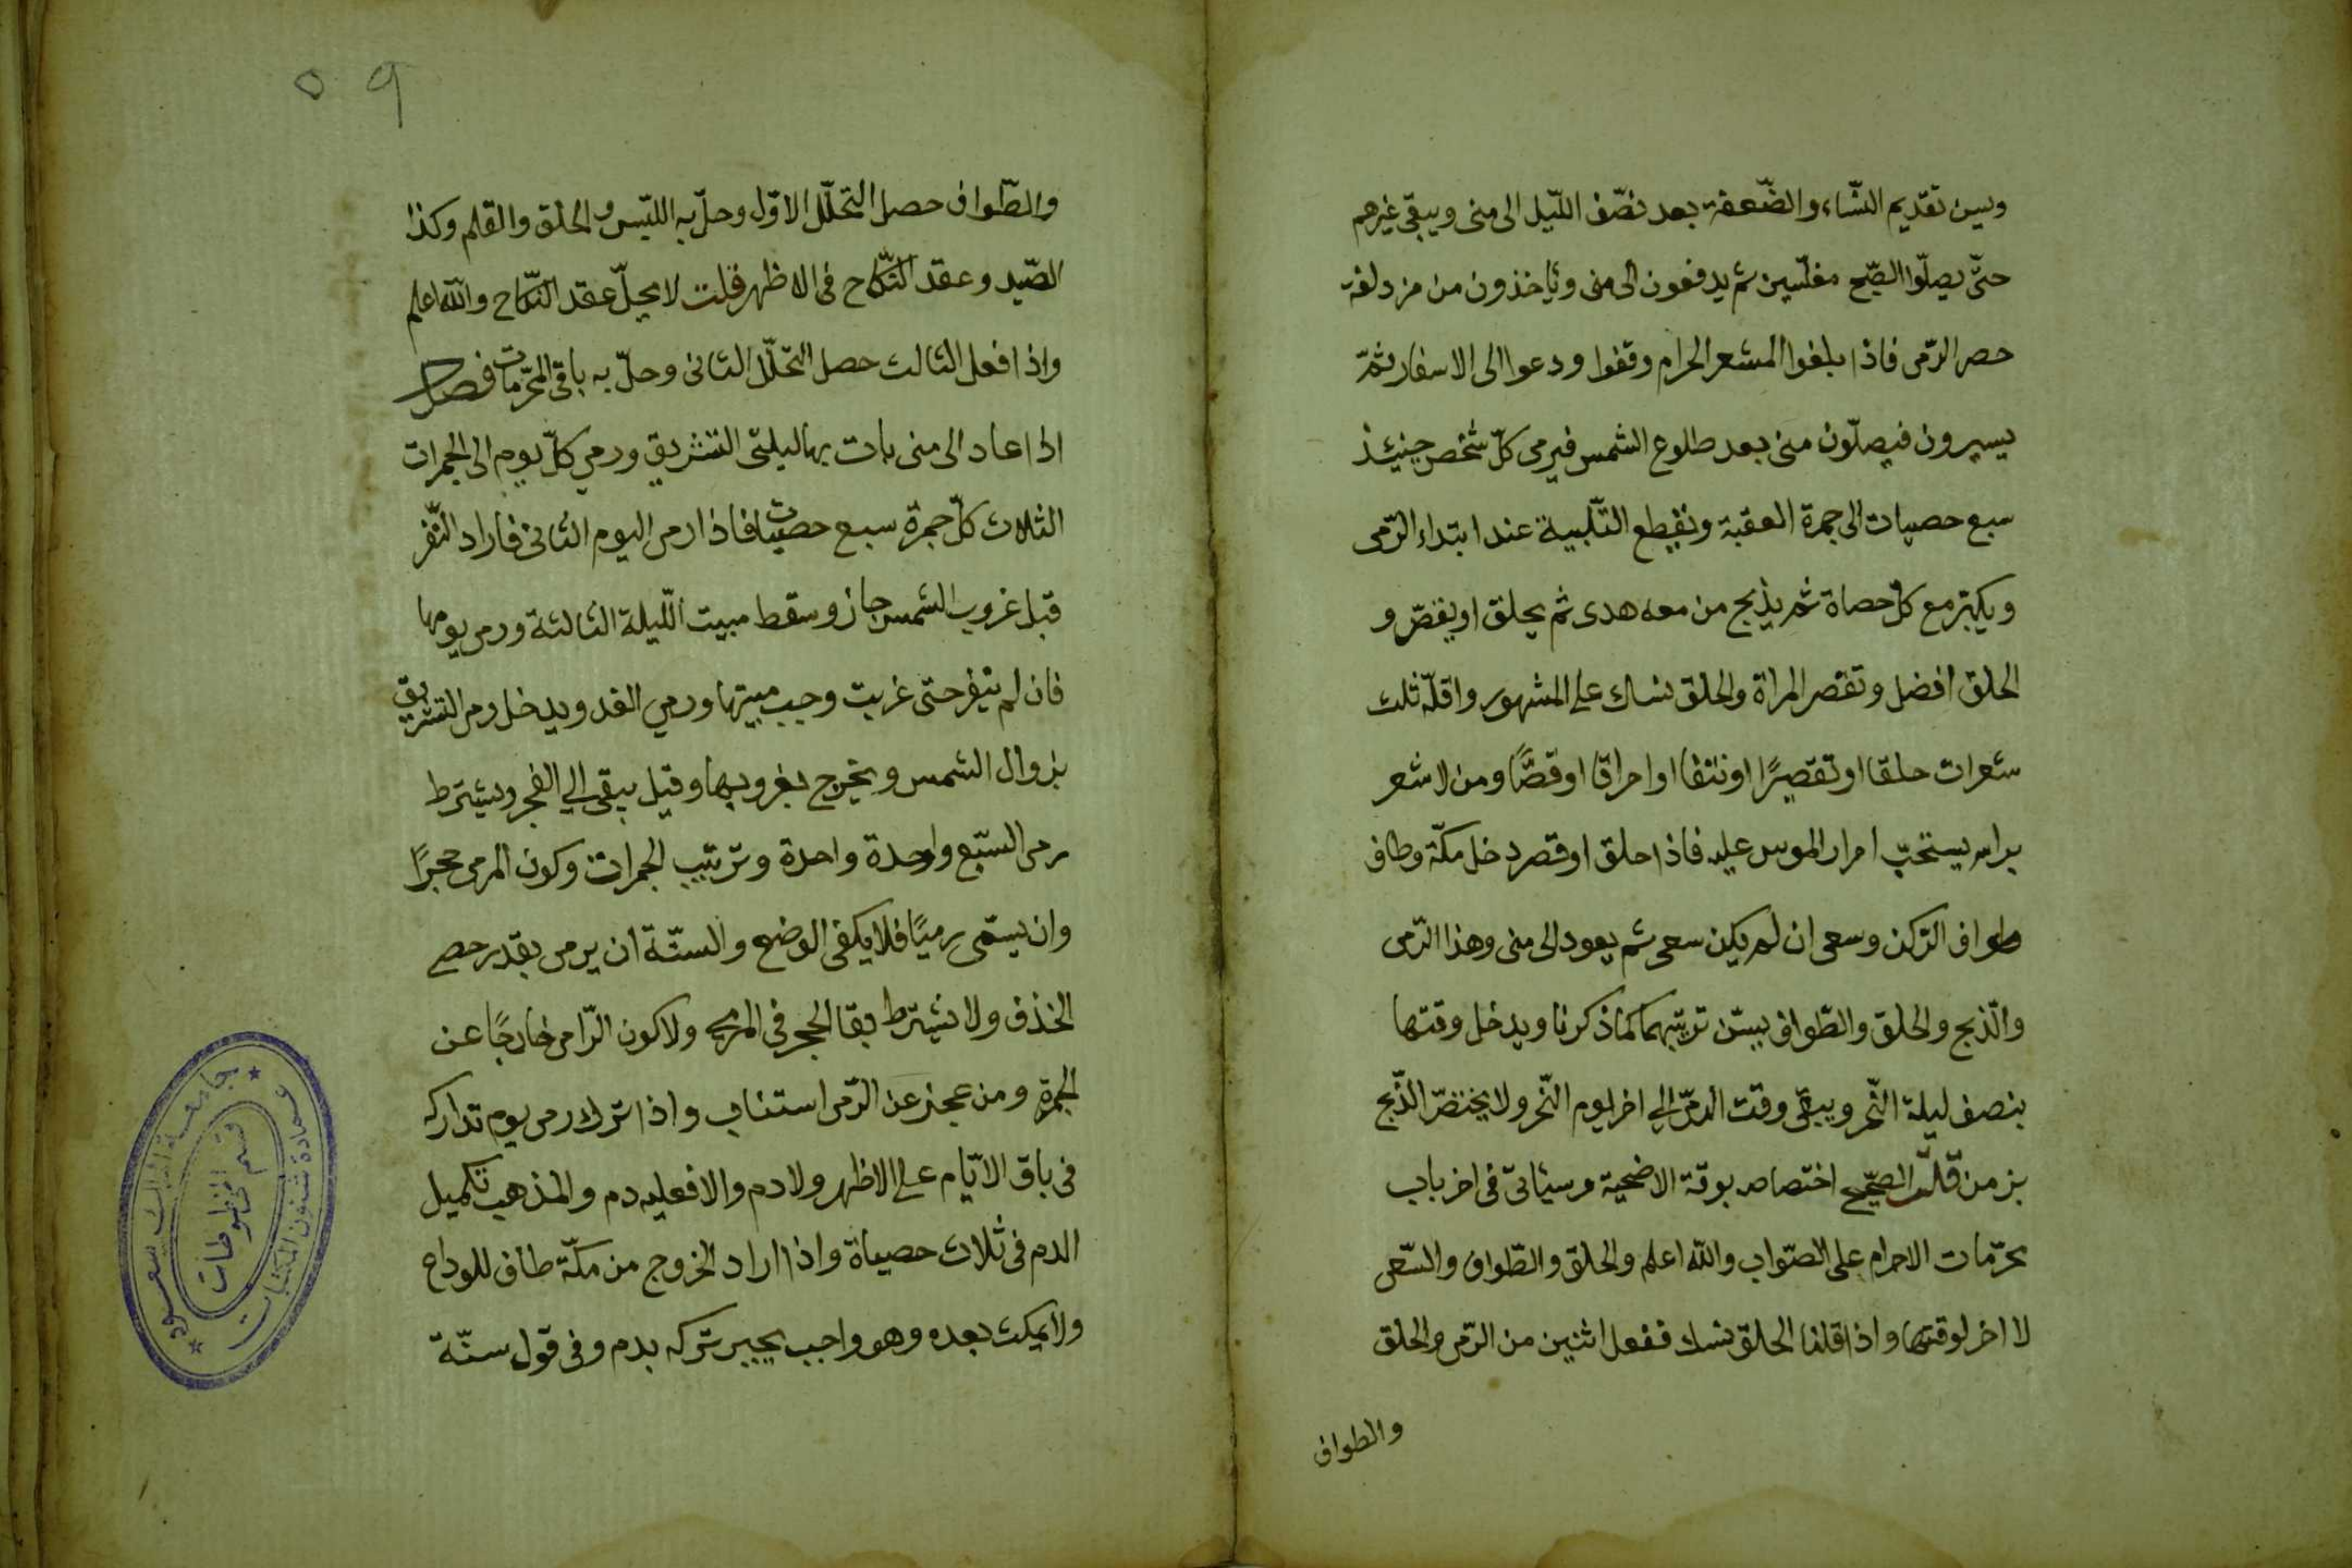 ويسن تقديم النّساء والضّعفة بعد نصّف اللّيل الى منى ويبقى غيرهم
حتّى يصلّوا الصّبح مغلّسين ثم يدفعون الى منى ويأخذون من مزدلفة
حصى الرّمى فاذا بلغوا المشعر الحرام وقفوا ودعوا الى الاسفار ثمّ
يسيرون فيصلّون منى بعد طلوع الشمس فيرمى كلّ شخص حينئذ
سبع حصيات الى جمرة العقبة ويقطع التّلبية عند ابتداء الرّمى
ويكبّر مع كلّ حصاة ثم يذبح من معه هدى ثم يحلق او يقصّر و
الحلق افضل وتقصر المراة والحلق نسك على المشهور واقلّه ثلث
شعرات حلقا او تقصيرًا او نتفا او احراقا او قصًّا ومن لا شعر
براسه يستحبّ امرار الموسى عليه فاذا حلق او قصر دخل مكّة وطاف
طواف الرّكن وسعى ان لم يكن سعى ثم يعود الى منى وهذا الرّمى
والذّبح والحلق والطّواف يسنّ ترتيبهما كما ذكرنا ويدخل وقتها
بنصف ليلة النّحر ويبقى وقت الرمّى الى اخر يوم النّحر ولا يختصّ الذّبح
بزمن قلت الصّحيح اختصاصه بوقة الاضحية وسيئاتى فى اخر باب
محرّمات الاحرام على الصّواب والله اعلم والحلق والطّواف والسّعى
لا اخر لوقتها واذا قلنا الحلق نسك ففعل اثنين من الرّمى والحلق
والطواف
٥٩
والطّواف حصل التحلّل الاوّل وحلّ به اللبّس والحلق والقلم وكذا
الصّيد وعقد النّكاح فى الاظهر قلت لا يحلّ عقد النّكاح والله اعلم
واذا فعل الثالث حصل التحلّل الثانى وحلّ به باقى المحرّمات فصل
اذا عاد الى منى بات بها ليلتى التشريق ورمى كلّ يوم الى الجمرات
الثلاث كلّ جمرة سبع حصيات فاذا رمى اليوم الثانى فاراد النّفر
قبل غروب الشمس جاز وسقط مبيت اللّيلة الثالثة ورمى يومها
فان لم ينفر حتى غربت وجب مبيتها ورمى الغد ويدخل رمى التشريق
بزوال الشمس ويخرج بغروبها وقيل يبقى الى الفجر ويشترط
رمى السّبع واحدة واحدة وترتيب الجمرات وكون المرمى حجرًا
وان يسمّى رميًا فلا يكفى الوضع والسنّة ان يرمى بقدر حصى
الخذف ولا يشترط بقا الحجر فى المرمى ولا كون الرّامى خارجًا عن
الجمرة ومن عجز عن الرّمى استناب واذا ترك رمى يوم تداركه
فى باقى الايّام على الاظهر ولا دم والا فعليه دم والمذهب تكميل
الدم فى ثلاث حصياة واذا اراد الخروج من مكّة طاف للوداع
ولا يمكث بعده وهو واجب يجبر تركه بدم وفى قول سنّة
جامعة الملك سعود
عمادة شئون المكتبات
قسم المخطوطات